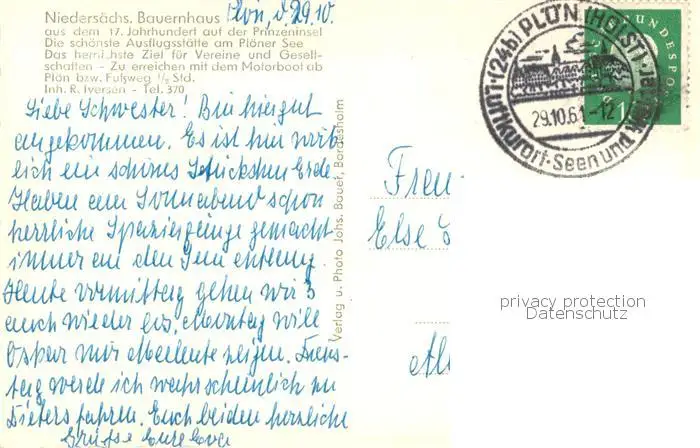 Niedersächs. Bauernhaus
aus dem 17. Jahrhundert auf der Prinzeninsel
Die schönste Ausflugsstätte am Plöner See
Das herrlichste Ziel für Vereine und Gesell-
schaften - Zu erreichen mit dem Motorboot ab
Plön bzw. Fußweg 1/2 Std.
Inh. R. Iversen - Tel. 370
Plön, d. 29.10.
Liebe Schwester! Bin hier gut
angekommen. Es ist hier wirk-
lich ein schönes Stückchen Erde.
Haben am Sonnabend schon
herrliche Spaziergänge gemacht
immer an den Seen entlang.
Heute vormittag gehen wir 3
auch wieder los. Montag will
Oskar mir Malente zeigen. Diens-
tag werde ich wahrscheinlich zu
Dieters fahren. Euch beiden herzliche
Grüße Eure
Verlag u. Photo Johs. Bauer, Bordesholm
(24b) PLÖN (HOLST)
29.10.61-12
Luftkurort · Seen und
BUNDESPOST
10
Frau
Else
privacy protection
Datenschutz